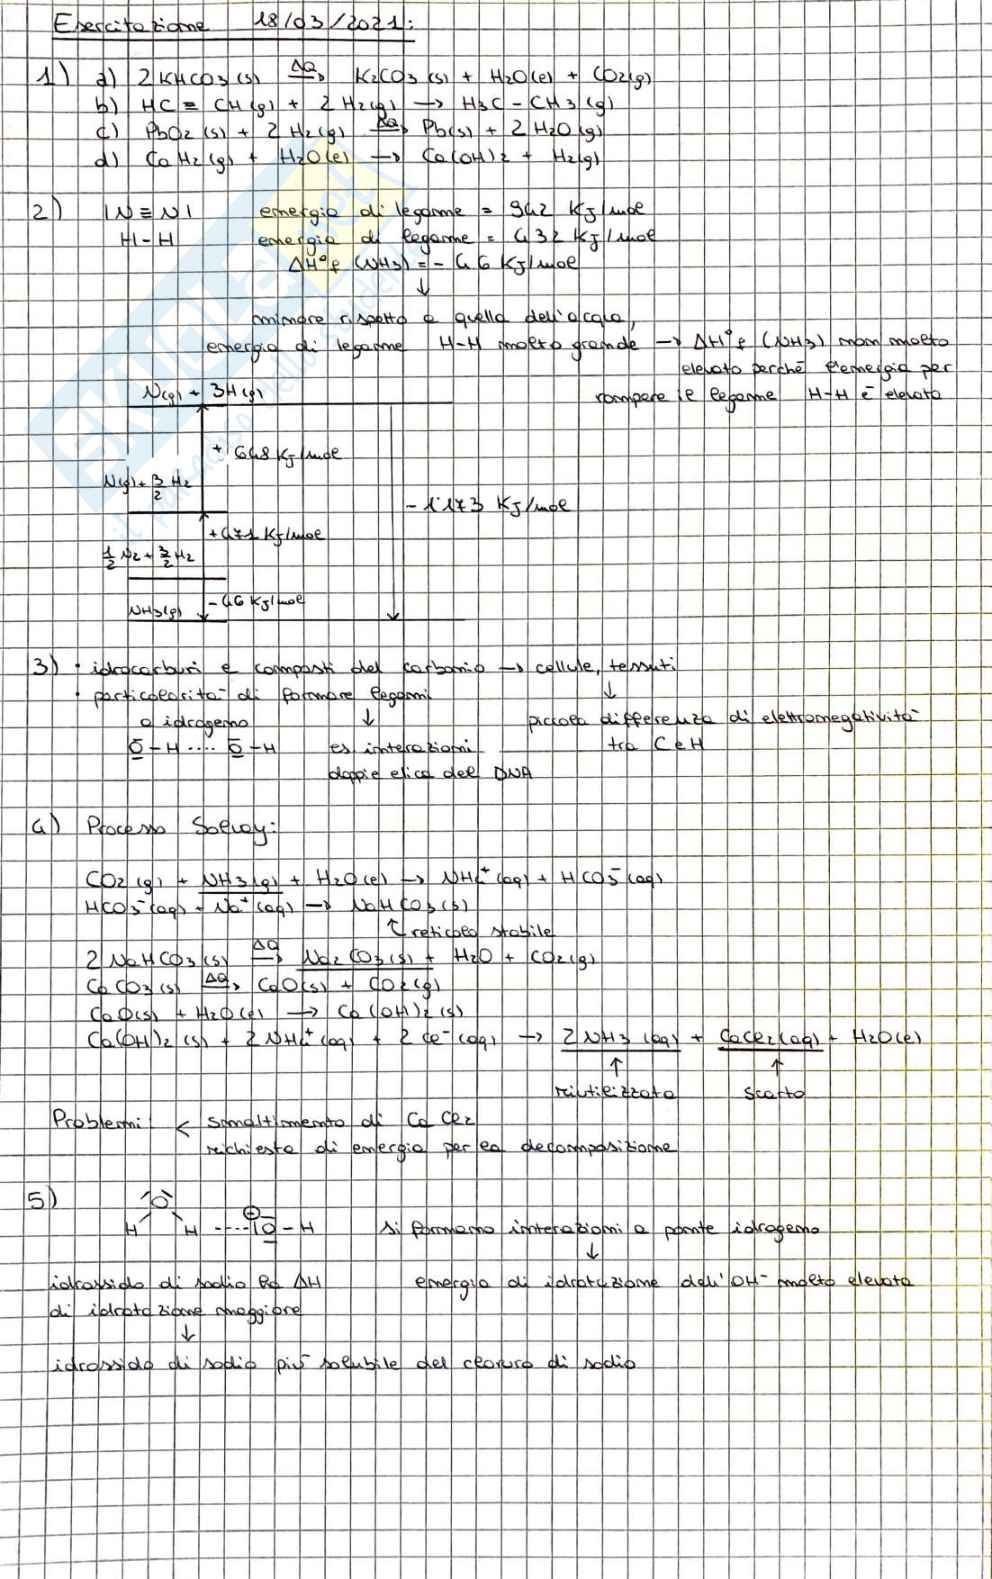 Esercitazione 18/03/2021:
1) a) 2KHCO3(s) ΔQ→ K2CO3(s) + H2O(l) + CO2(g)
b) HC≡CH(g) + 2H2(g) → H3C-CH3(g)
c) PbO2(s) + 2H2(g) ΔQ→ Pb(s) + 2H2O(g)
d) CaH2(g) + H2O(l) → Ca(OH)2 + H2(g)
2) |N≡N| energia di legame = 942 KJ/mole
H-H energia di legame = 432 KJ/mole
ΔH°f (NH3) = -46 KJ/mole
↓
minore rispetto a quella dell'acqua,
energia di legame H-H molto grande → ΔH°f (NH3) non molto
elevato perché l'energia per
rompere il legame H-H è elevata
N(g) + 3H(g)
+ 648 KJ/mole
N(g) + 3/2 H2
- 1'173 KJ/mole
+471 KJ/mole
1/2 N2 + 3/2 H2
-46 KJ/mole
NH3(g)
3) • idrocarburi e composti del carbonio → cellule, tessuti
• particolarità di formare legami ↓
a idrogeno ↓ piccola differenza di elettronegatività
O-H .... O-H es interazioni tra C e H
doppie elica del DNA
4) Processo Solvay:
CO2(g) + NH3(g) + H2O(l) → NH4+(aq) + HCO3-(aq)
HCO3-(aq) + Na+(aq) → NaHCO3(s)
↑ reticolo stabile
2NaHCO3(s) ΔQ→ Na2CO3(s) + H2O + CO2(g)
CaCO3(s) ΔQ→ CaO(s) + CO2(g)
CaO(s) + H2O(l) → Ca(OH)2(s)
Ca(OH)2(s) + 2NH4+(aq) + 2Cl-(aq) → 2NH3(aq) + CaCl2(aq) + H2O(l)
↑ ↑
riutilizzato scarto
Problemi < smaltimento di CaCl2
richiesta di energia per la decomposizione
5) O
H H ----|O-H si formano interazioni a ponte idrogeno
↓
idrossido di sodio ha ΔH energia di idratazione dell'OH- molto elevata
di idratazione maggiore
↓
idrossido di sodio più solubile del cloruro di sodio